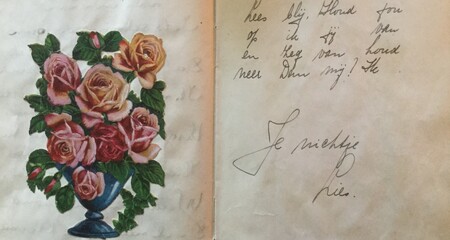 Lees blij. Houd jou
op ik jij van
en zeg van houd
neer Dan mij! Ik
Je nichtje
Lies.